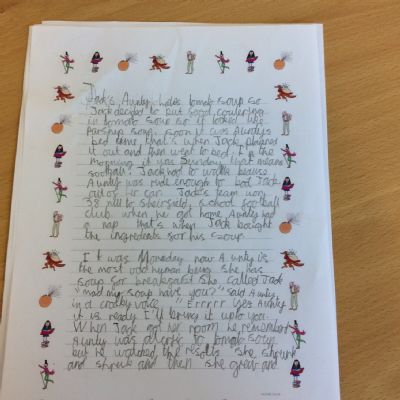 Jack's Aunty hates tomato soup so
Jack decided to put food colering
in tomato soup so it looked like
parsnip soup. soon it was Auntys
bed time, that's when Jack planned
it out and then went to bed. In the
morning it was Sunday that means
football! Jack had to walk because
Aunty was rude enough to Jack
out of her car. Jack's team won
38 nill to school football
club. when he got home Aunty had
a nap that's when Jack bought
the ingredients for his soup.
It was Monday now Aunty is
the most odd human being she has
soup for breakfast she called Jack
"mad my soup hant you?" said Aunty
in a croaky voice "Errrrr Yes Aunty
it is ready I'll bring it upto you.
When Jack got her room he remember
Aunty was alergic to tomato soup
but he wadted the results she shrunk
and shrunk and then she grew and